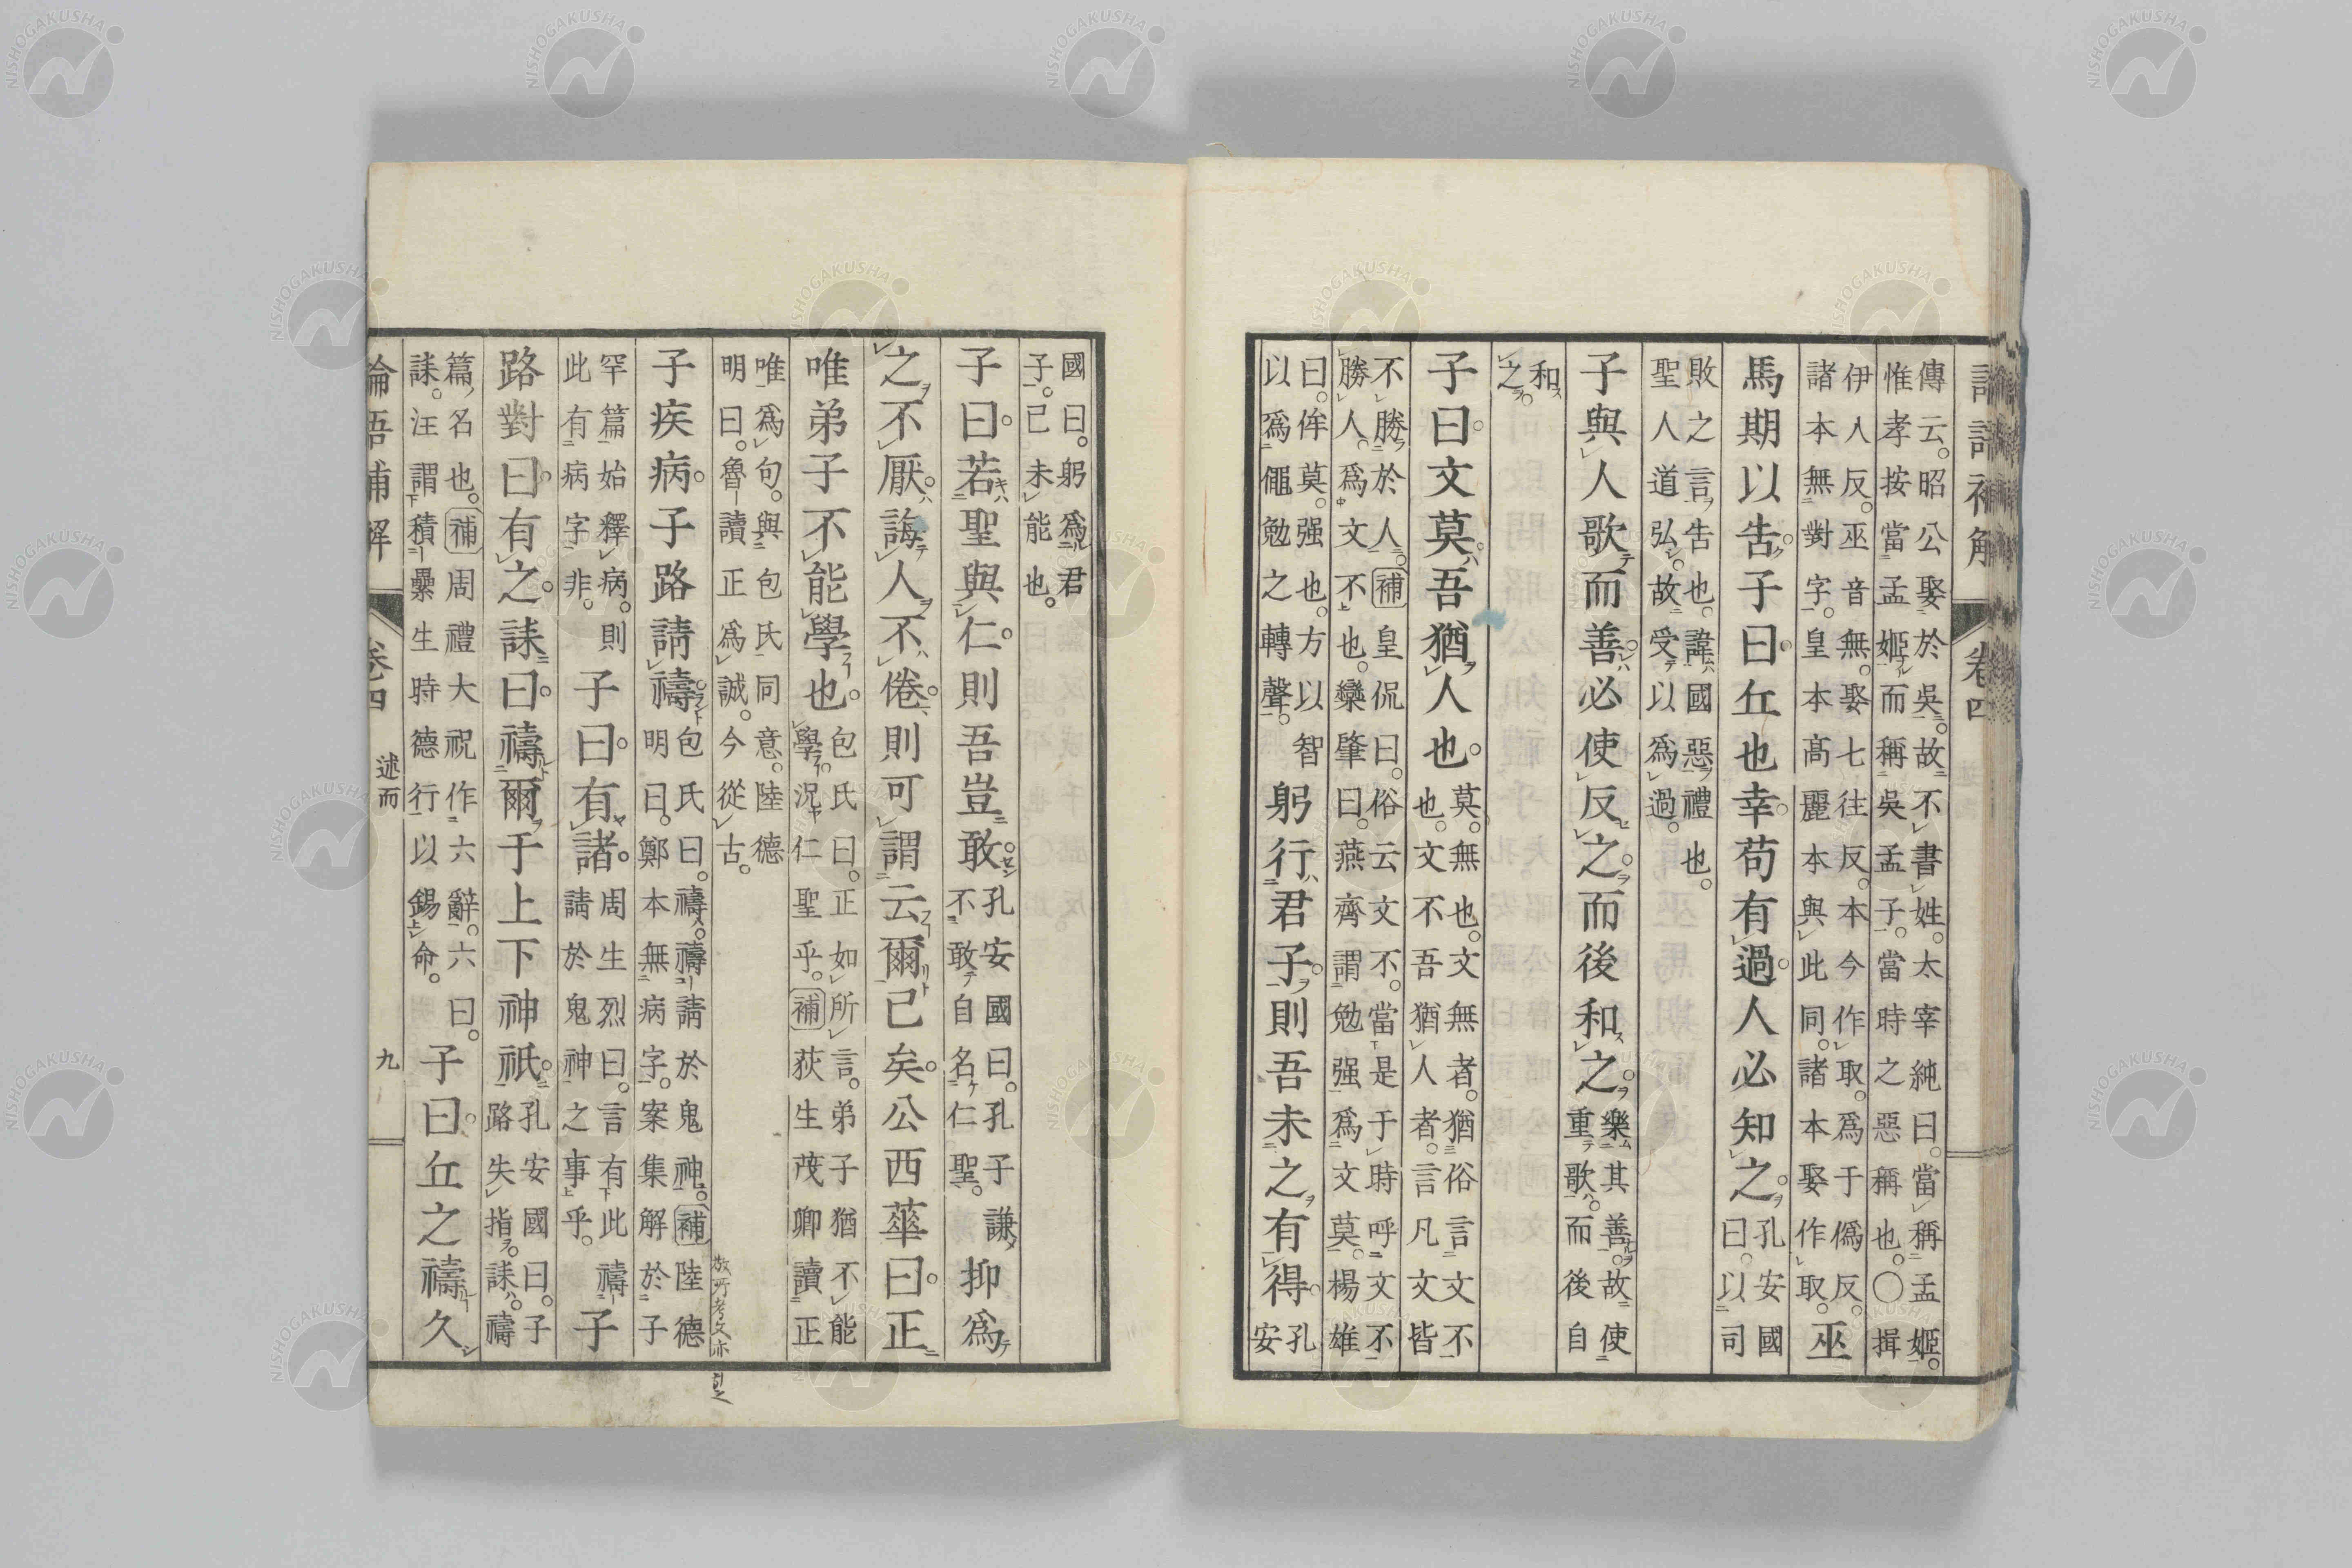 傳云。昭公娶於吳。故不書姓。太宰純曰。當稱孟姬。
惟孝按當孟姬而稱吳孟子。當時之惡稱也。〇揖
伊入反。巫音無。娶七往反。本今作取。爲于僞反。
諸本無對字。皇本髙麗本與此同。諸本娶作取。
巫
馬期以告子曰丘也幸苟有過人必知之
孔安國
曰。以司
敗之言告也。諱國惡禮也。
聖人道弘。故受以爲過。
子與人歌而善必使反之而後和之
樂其善。故使
重歌。而後自
和
之。
子曰文莫吾猶人也
莫。無也。文無者。猶俗言文不
也。文不吾猶人者。言凡文皆
不勝於人。補皇侃曰。俗云文不。當是于時呼文不
勝人。爲文不也。欒肇曰。燕齊謂勉强爲文莫。楊雄
曰。侔莫。强也。方以智
以爲僶勉之轉聲。
躬行君子則吾未之有得
孔
安
國曰。躬爲君
子。己未能也。
子曰若聖與仁則吾豈敢
孔安國曰。孔子謙
不敢自名仁聖。
抑爲
之不厭誨人不倦則可謂云爾已矣公西華曰正
唯弟子不能學也
包氏曰。正如所言。弟子猶不能
學。況仁聖乎。補荻生茂卿讀正
唯爲句。與包氏同意。陸德
明曰。魯讀正爲誠。今從古。
子疾病子路請禱
包氏曰。禱。禱請於鬼神。補陸德
明曰。鄭本無病字。案集解於子
罕篇始釋病。則
此有病字非。
子曰有諸
周生烈曰。言有此禱
請於鬼神之事乎。
子
路對曰有之誄曰禱爾于上下神祇
孔安國曰。子
路失指。誄。禱
篇名也。補周禮大祝作六辭。六曰。
誄。注謂積累生時德行以錫命。
子曰丘之禱久
論語補解
卷四
述而
九
NISHOGAKUSHA